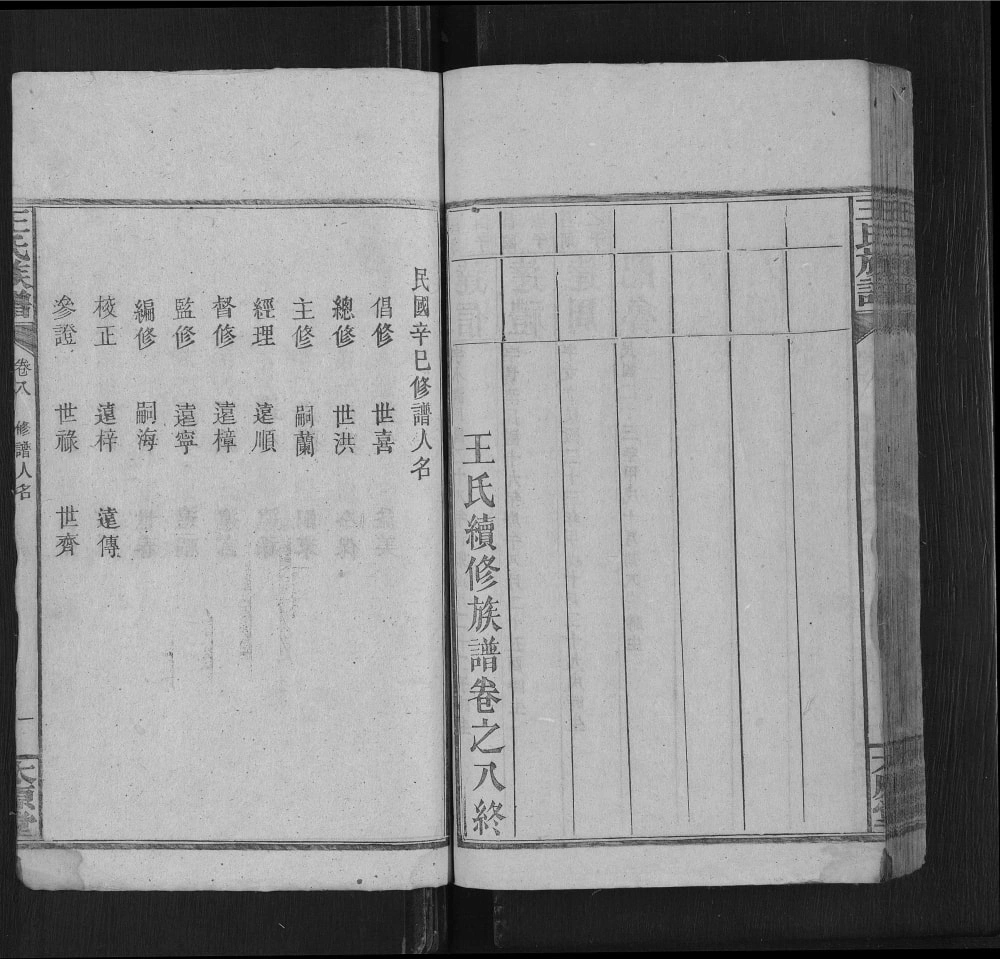 王氏族譜
王氏續修族譜卷之八終
民國辛巳修譜人名
倡修 世喜
總修 世洪
主修 嗣蘭
經理 遠順
督修 遠樟
監修 遠寧
編修 嗣海
校正 遠梓 遠傳
參證 世祿 世齊
王氏族譜 卷八 修譜人名 一 太原堂